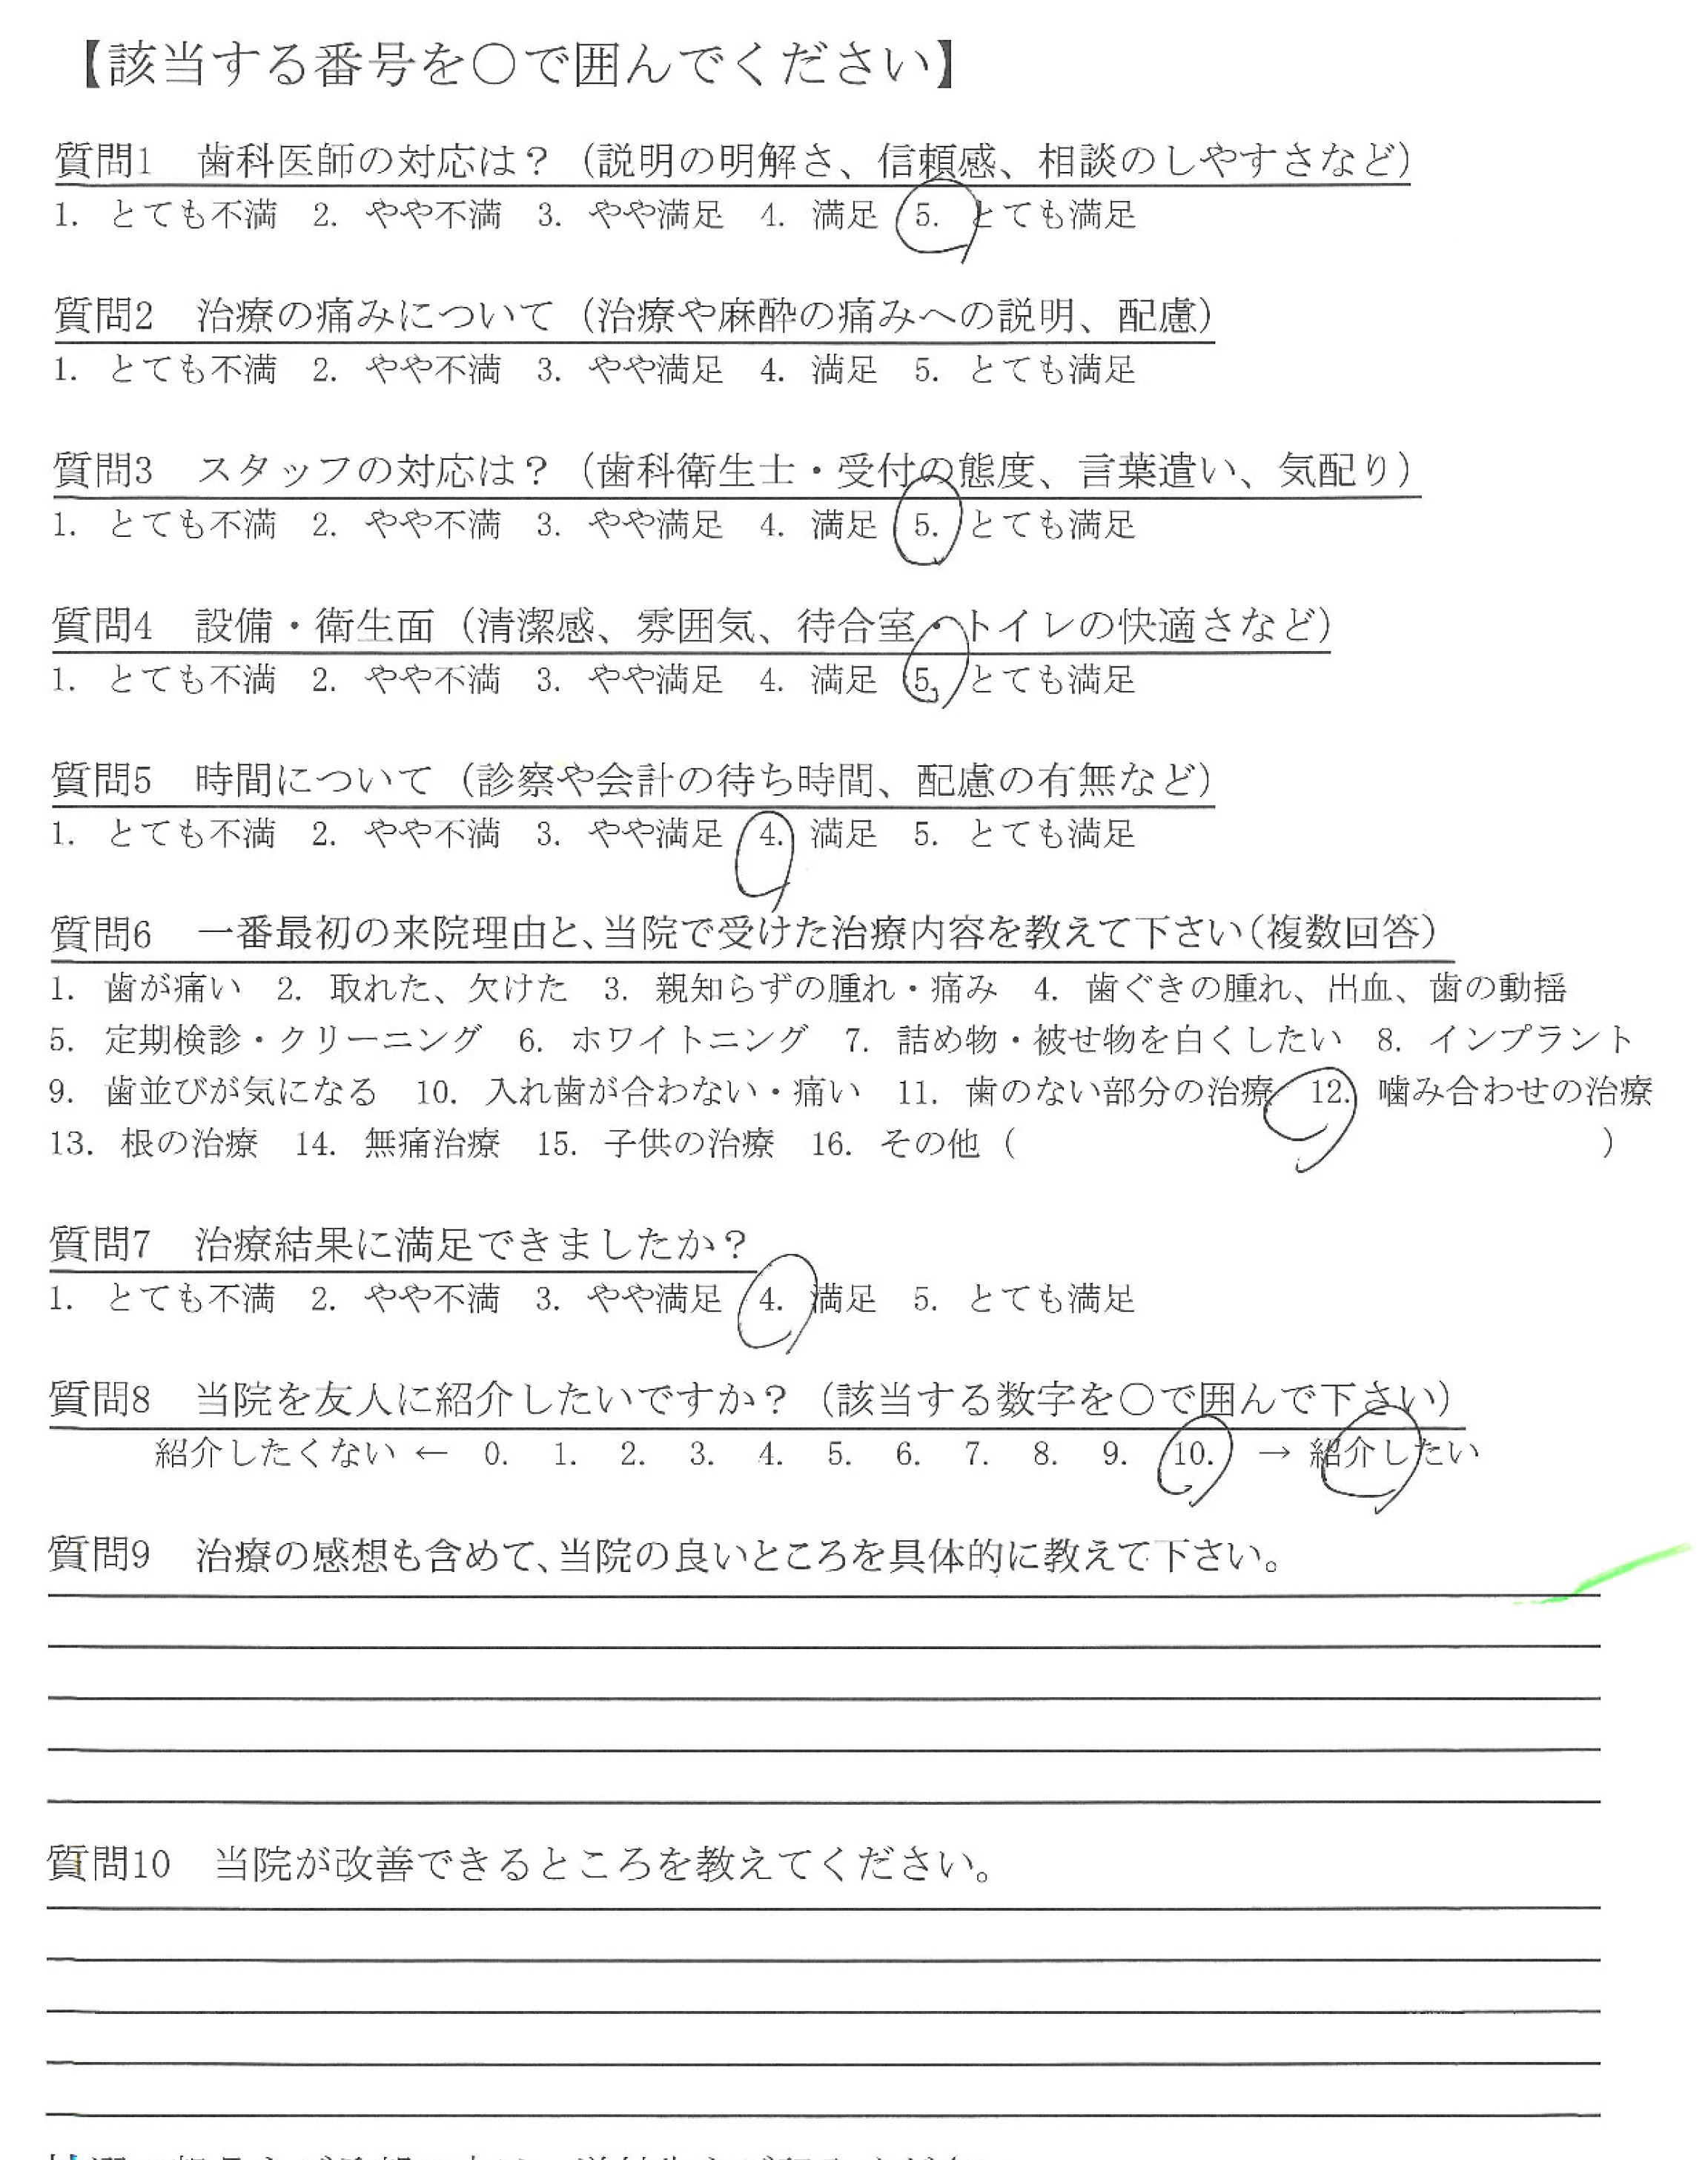 【該当する番号を〇で囲んでください】
質問1　歯科医師の対応は？（説明の明解さ、信頼感、相談のしやすさなど）
1. とても不満　2. やや不満　3. やや満足　4. 満足　5. とても満足
質問2　治療の痛みについて（治療や麻酔の痛みへの説明、配慮）
1. とても不満　2. やや不満　3. やや満足　4. 満足　5. とても満足
質問3　スタッフの対応は？（歯科衛生士・受付の態度、言葉遣い、気配り）
1. とても不満　2. やや不満　3. やや満足　4. 満足　5. とても満足
質問4　設備・衛生面（清潔感、雰囲気、待合室・トイレの快適さなど）
1. とても不満　2. やや不満　3. やや満足　4. 満足　5. とても満足
質問5　時間について（診察や会計の待ち時間、配慮の有無など）
1. とても不満　2. やや不満　3. やや満足　4. 満足　5. とても満足
質問6　一番最初の来院理由と、当院で受けた治療内容を教えて下さい（複数回答）
1. 歯が痛い　2. 取れた、欠けた　3. 親知らずの腫れ・痛み　4. 歯ぐきの腫れ、出血、歯の動揺
5. 定期検診・クリーニング　6. ホワイトニング　7. 詰め物・被せ物を白くしたい　8. インプラント
9. 歯並びが気になる　10. 入れ歯が合わない・痛い　11. 歯のない部分の治療　12. 噛み合わせの治療
13. 根の治療　14. 無痛治療　15. 子供の治療　16. その他（　　　　　　　　　　）
質問7　治療結果に満足できましたか？
1. とても不満　2. やや不満　3. やや満足　4. 満足　5. とても満足
質問8　当院を友人に紹介したいですか？（該当する数字を〇で囲んで下さい）
紹介したくない ← 0. 1. 2. 3. 4. 5. 6. 7. 8. 9. 10. → 紹介したい
質問9　治療の感想も含めて、当院の良いところを具体的に教えて下さい。
質問10　当院が改善できるところを教えてください。